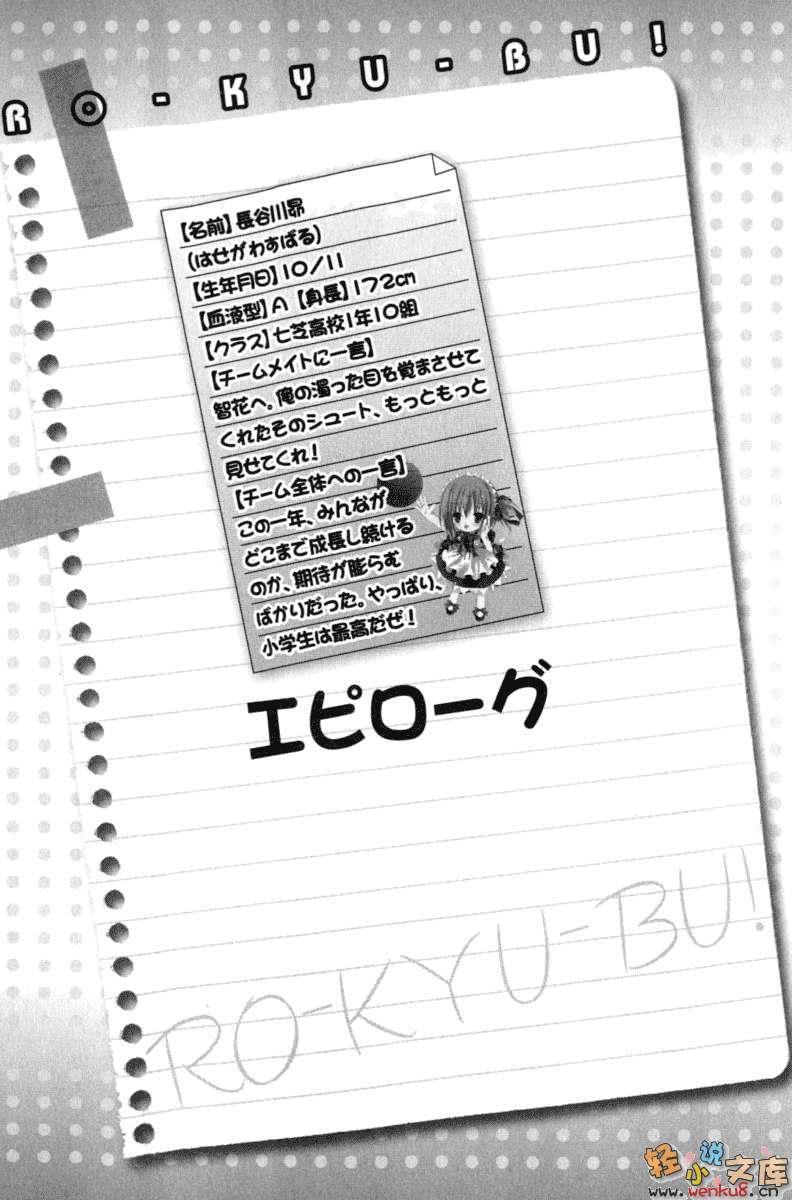 RO-KYU-BU!
【名前】長谷川昴
(はせがわすばる)
【生年月日】10/11
【血液型】A 【身長】172cm
【クラス】七芝高校1年10組
【チームメイトに一言】
智花へ。俺の濁った目を覚まさせて
くれたそのシュート、もっともっと
見せてくれ!
【チーム全体への一言】
この一年、みんなが
どこまで成長し続ける
のか、期待が膨らむ
ばかりだった。やっぱり、
小学生は最高だぜ!
エピローグ
RO-KYU-BU!
轻小说文库
www.wenku8.cn